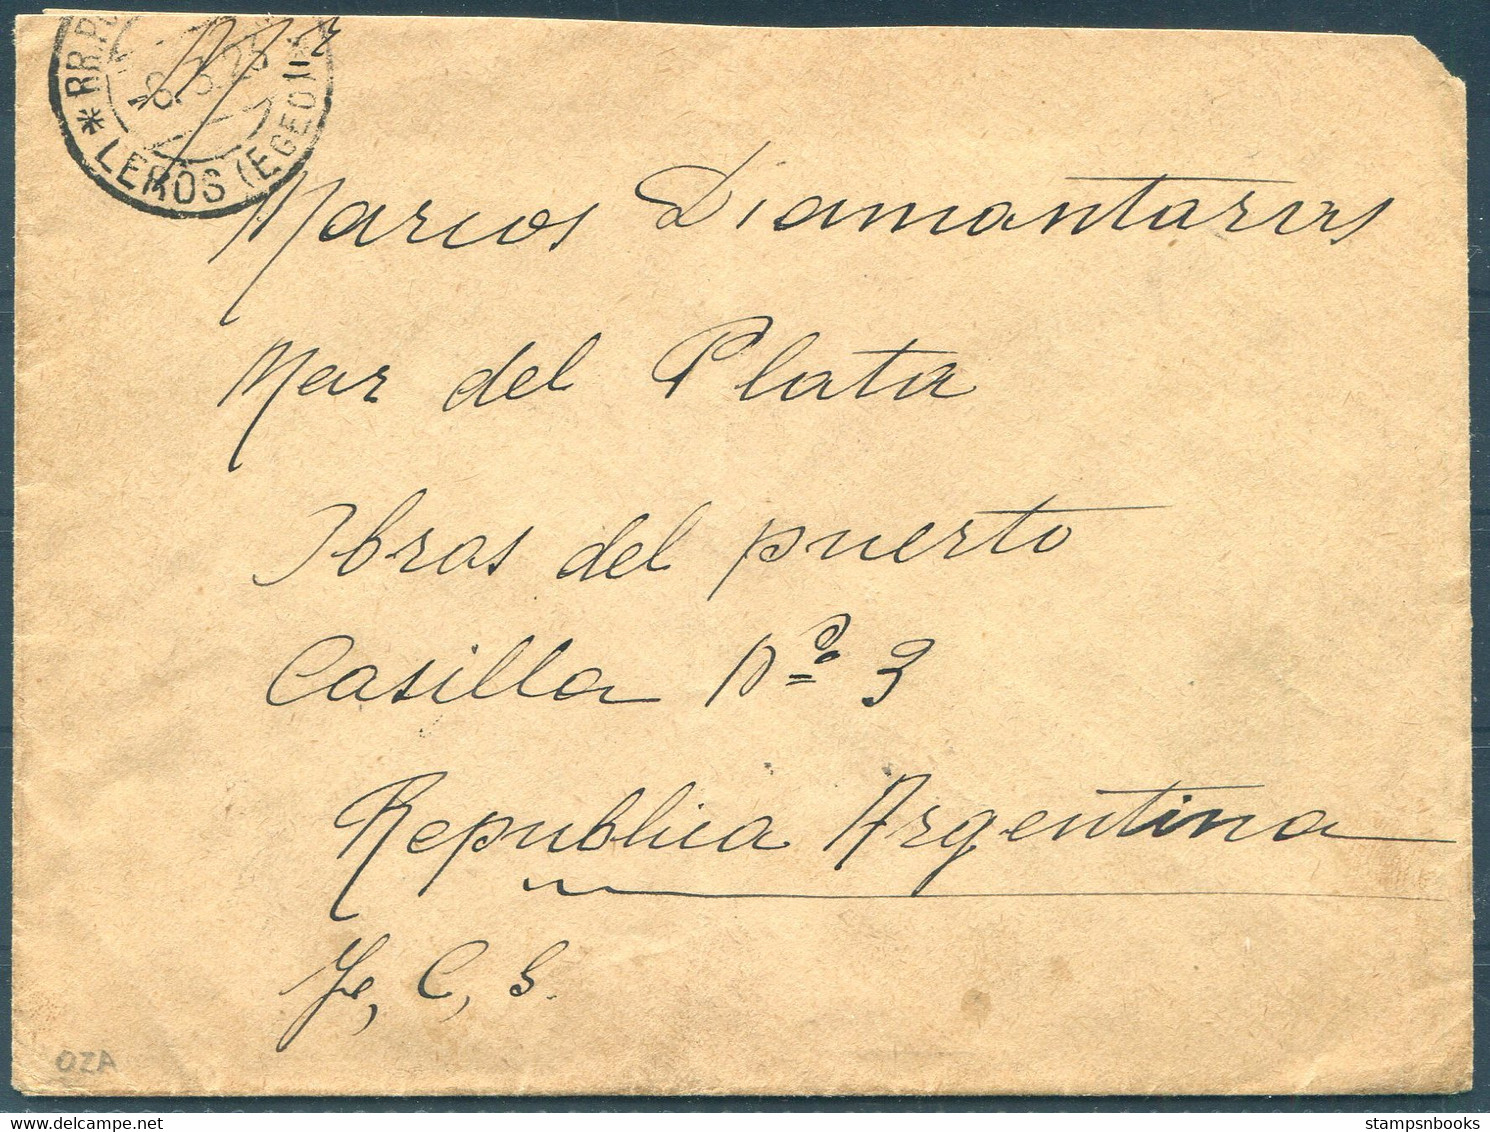 * RR.P
8.5.23
LEROS (EGEO) *
Marcos Diamantaras
Mar del Plata
Obras del puerto
Casilla No 3
Republica Argentina
F, C, S.
OZA
stampsnbooks